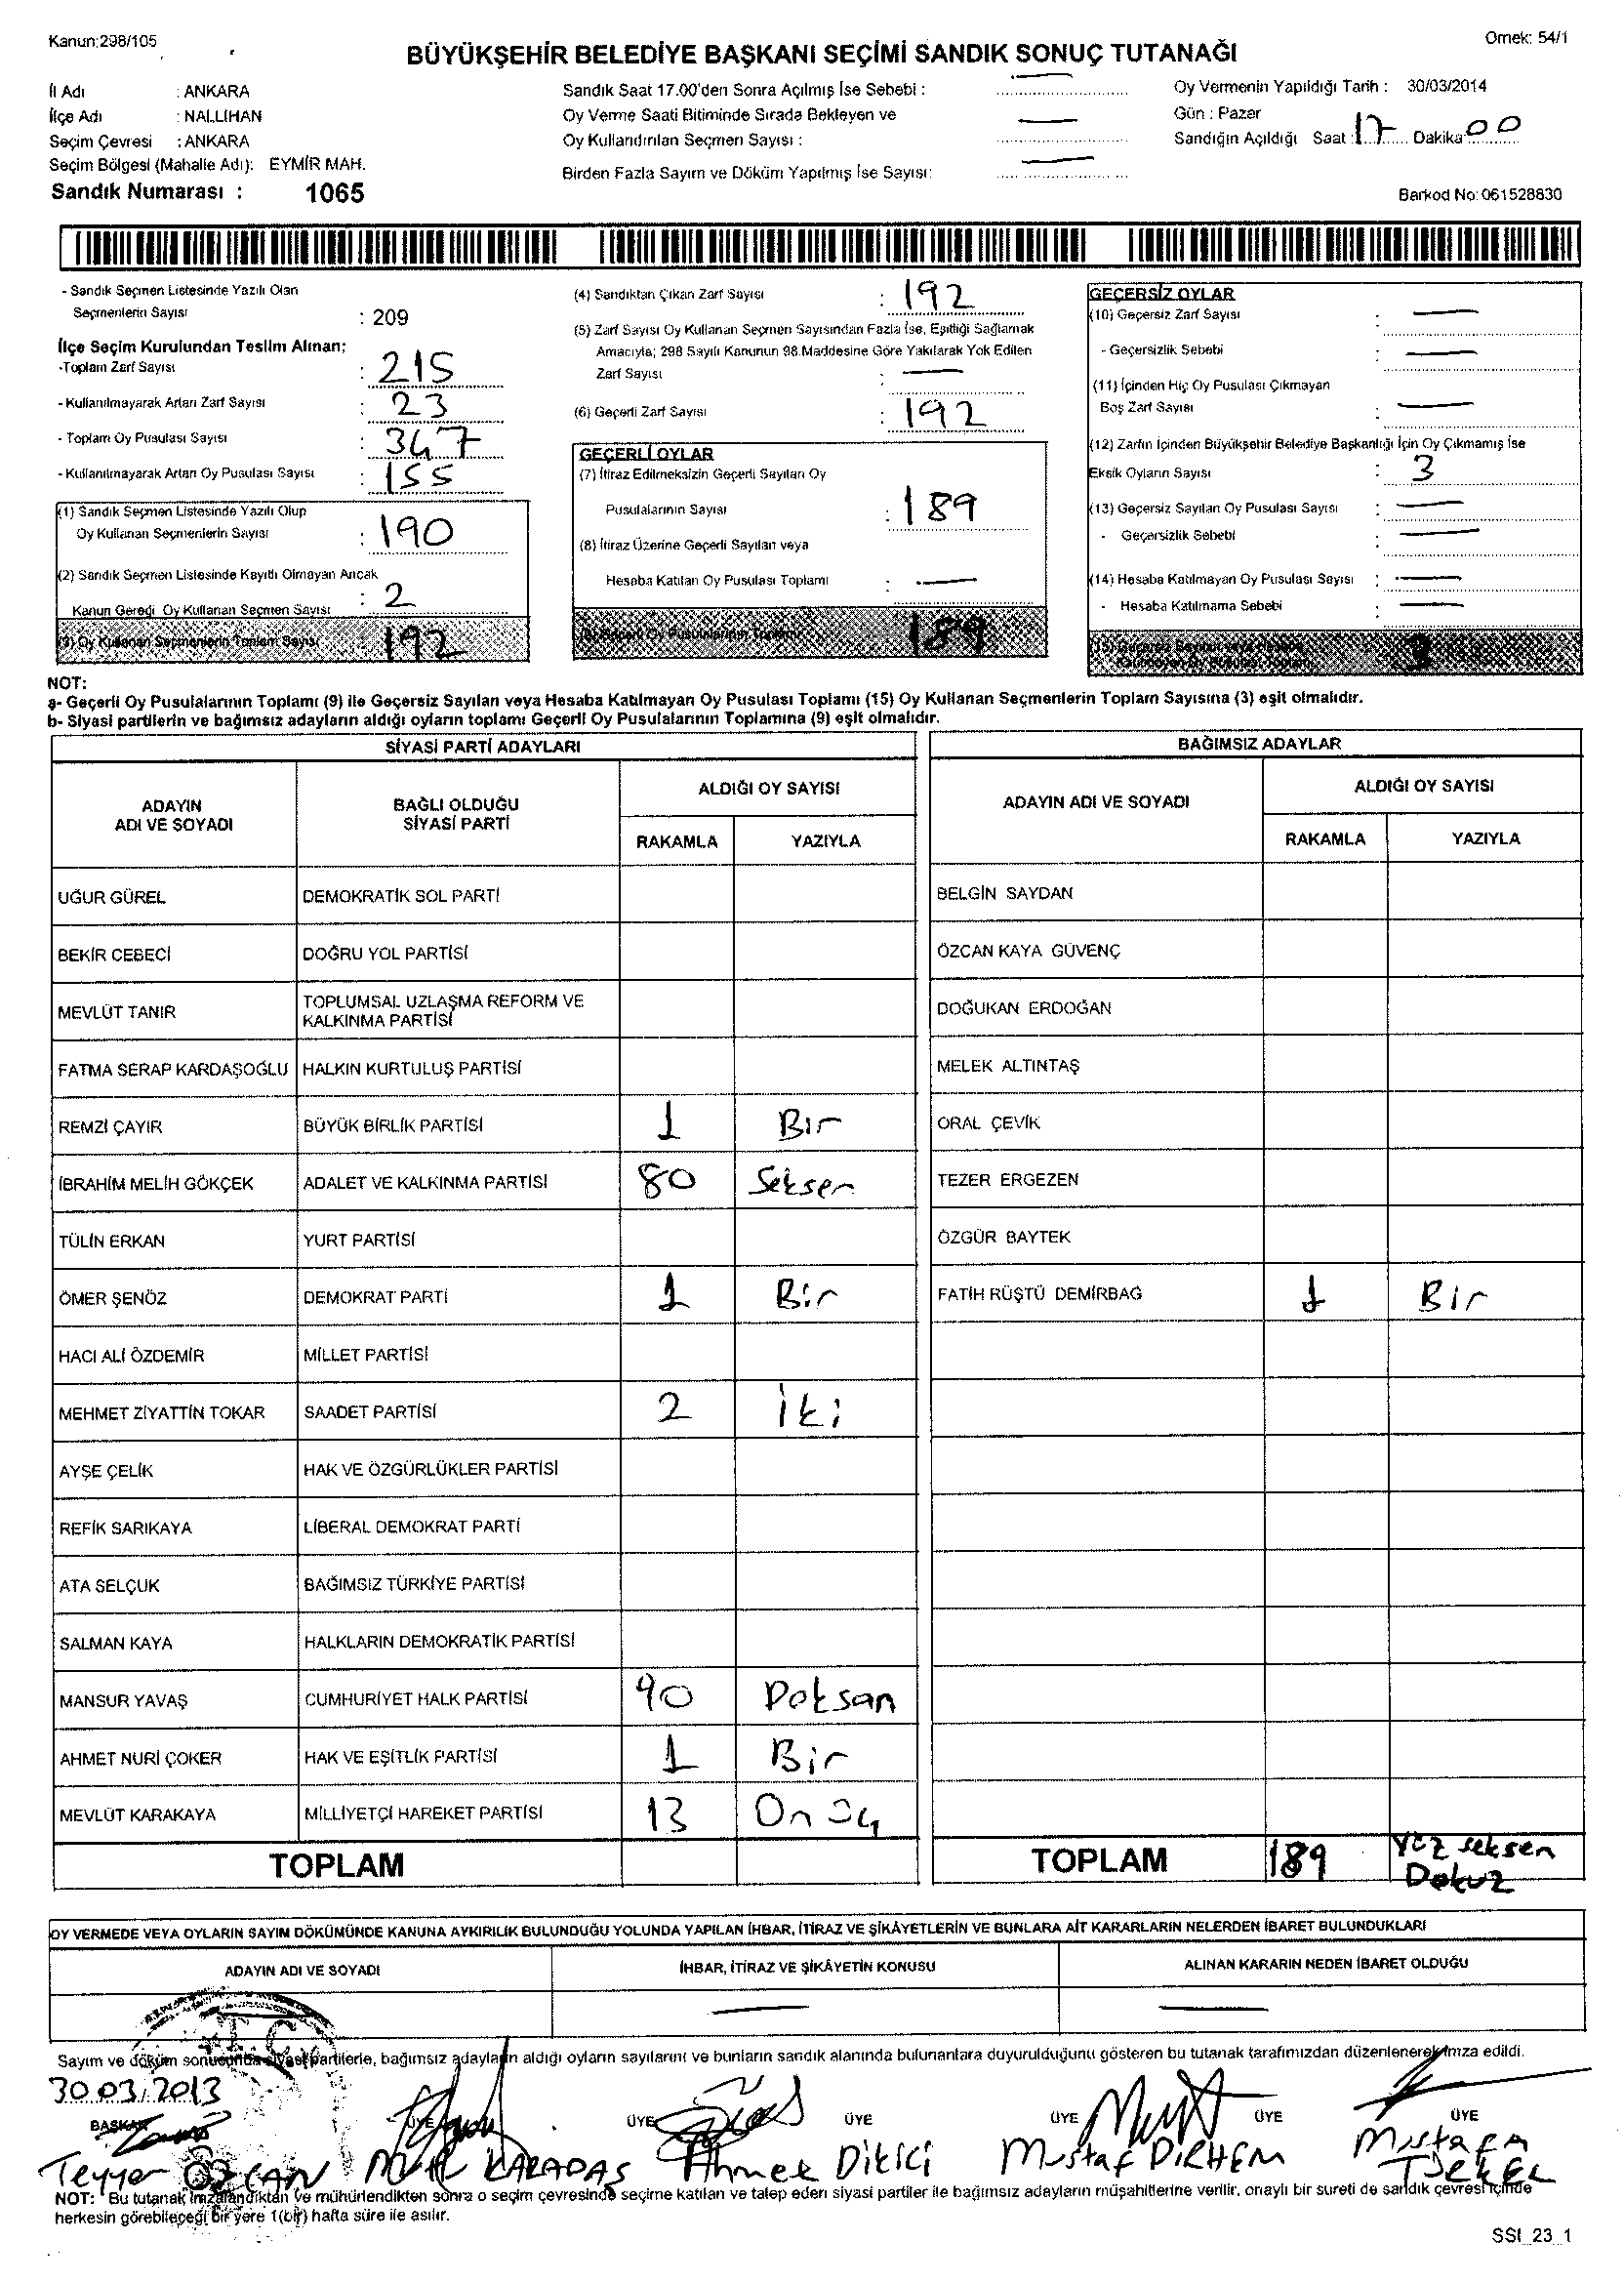 Kanun:298/105
Örnek: 54/1
BÜYÜKŞEHİR BELEDİYE BAŞKANI SEÇİMİ SANDIK SONUÇ TUTANAĞI
İl Adı : ANKARA
İlçe Adı : NALLIHAN
Seçim Çevresi : ANKARA
Seçim Bölgesi (Mahalle Adı): EYMİR MAH.
Sandık Numarası : 1065
Sandık Saat 17.00'den Sonra Açılmış İse Sebebi : —
Oy Verme Saati Bitiminde Sırada Bekleyen ve
Oy Kullandırılan Seçmen Sayısı : —
Birden Fazla Sayım ve Döküm Yapılmış İse Sayısı: —
Oy Vermenin Yapıldığı Tarih : 30/03/2014
Gün : Pazar
Sandığın Açıldığı Saat : 17 Dakika 00
Barkod No: 061528830
- Sandık Seçmen Listesinde Yazılı Olan
Seçmenlerin Sayısı : 209
İlçe Seçim Kurulundan Teslim Alınan;
-Toplam Zarf Sayısı : 215
- Kullanılmayarak Artan Zarf Sayısı : 23
- Toplam Oy Pusulası Sayısı : 347
- Kullanılmayarak Artan Oy Pusulası Sayısı : 155
(1) Sandık Seçmen Listesinde Yazılı Olup
Oy Kullanan Seçmenlerin Sayısı : 190
(2) Sandık Seçmen Listesinde Kayıtlı Olmayan Ancak
Kanun Gereği Oy Kullanan Seçmen Sayısı : 2
(3) Oy Kullanan Seçmenlerin Toplam Sayısı 192
(4) Sandıktan Çıkan Zarf Sayısı : 192
(5) Zarf Sayısı Oy Kullanan Seçmen Sayısından Fazla İse, Eşitliği Sağlamak
Amacıyla; 298 Sayılı Kanunun 98.Maddesine Göre Yakılarak Yok Edilen
Zarf Sayısı : —
(6) Geçerli Zarf Sayısı : 192
GEÇERLİ OYLAR
(7) İtiraz Edilmeksizin Geçerli Sayılan Oy
Pusulalarının Sayısı : 189
(8) İtiraz Üzerine Geçerli Sayılan veya
Hesaba Katılan Oy Pusulası Toplamı : —
(9) Geçerli Oy Pusulalarının Toplamı 189
GEÇERSİZ OYLAR
(10) Geçersiz Zarf Sayısı : —
- Geçersizlik Sebebi : —
(11) İçinden Hiç Oy Pusulası Çıkmayan
Boş Zarf Sayısı : —
(12) Zarfın İçinden Büyükşehir Belediye Başkanlığı İçin Oy Çıkmamış İse
Eksik Oyların Sayısı : 3
(13) Geçersiz Sayılan Oy Pusulası Sayısı : —
- Geçersizlik Sebebi : —
(14) Hesaba Katılmayan Oy Pusulası Sayısı : —
- Hesaba Katılmama Sebebi : —
(15) Geçersiz Sayılan veya Hesaba
Katılmayan Oy Pusulası Toplamı 3
NOT:
a- Geçerli Oy Pusulalarının Toplamı (9) ile Geçersiz Sayılan veya Hesaba Katılmayan Oy Pusulası Toplamı (15) Oy Kullanan Seçmenlerin Toplam Sayısına (3) eşit olmalıdır.
b- Siyasi partilerin ve bağımsız adayların aldığı oyların toplamı Geçerli Oy Pusulalarının Toplamına (9) eşit olmalıdır.
SİYASİ PARTİ ADAYLARI
ADAYIN ADI VE SOYADI
BAĞLI OLDUĞU SİYASİ PARTİ
ALDIĞI OY SAYISI
RAKAMLA YAZIYLA
UĞUR GÜREL DEMOKRATİK SOL PARTİ
BEKİR CEBECİ DOĞRU YOL PARTİSİ
MEVLÜT TANIR TOPLUMSAL UZLAŞMA REFORM VE
KALKINMA PARTİSİ
FATMA SERAP KARDAŞOĞLU HALKIN KURTULUŞ PARTİSİ
REMZİ ÇAYIR BÜYÜK BİRLİK PARTİSİ 1 Bir
İBRAHİM MELİH GÖKÇEK ADALET VE KALKINMA PARTİSİ 80 Seksen
TÜLİN ERKAN YURT PARTİSİ
ÖMER ŞENÖZ DEMOKRAT PARTİ 1 Bir
HACI ALİ ÖZDEMİR MİLLET PARTİSİ
MEHMET ZİYATTİN TOKAR SAADET PARTİSİ 2 İki
AYŞE ÇELİK HAK VE ÖZGÜRLÜKLER PARTİSİ
REFİK SARIKAYA LİBERAL DEMOKRAT PARTİ
ATA SELÇUK BAĞIMSIZ TÜRKİYE PARTİSİ
SALMAN KAYA HALKLARIN DEMOKRATİK PARTİSİ
MANSUR YAVAŞ CUMHURİYET HALK PARTİSİ 90 Doksan
AHMET NURİ ÇOKER HAK VE EŞİTLİK PARTİSİ 1 Bir
MEVLÜT KARAKAYA MİLLİYETÇİ HAREKET PARTİSİ 13 On üç
TOPLAM
BAĞIMSIZ ADAYLAR
ADAYIN ADI VE SOYADI
ALDIĞI OY SAYISI
RAKAMLA YAZIYLA
BELGİN SAYDAN
ÖZCAN KAYA GÜVENÇ
DOĞUKAN ERDOĞAN
MELEK ALTINTAŞ
ORAL ÇEVİK
TEZER ERGEZEN
ÖZGÜR BAYTEK
FATİH RÜŞTÜ DEMİRBAĞ 1 Bir
TOPLAM 189 Yüz seksen
Dokuz
OY VERMEDE VEYA OYLARIN SAYIM DÖKÜMÜNDE KANUNA AYKIRILIK BULUNDUĞU YOLUNDA YAPILAN İHBAR, İTİRAZ VE ŞİKÂYETLERİN VE BUNLARA AİT KARARLARIN NELERDEN İBARET BULUNDUKLARI
ADAYIN ADI VE SOYADI İHBAR, İTİRAZ VE ŞİKÂYETİN KONUSU ALINAN KARARIN NEDEN İBARET OLDUĞU
— —
T.C.
Sayım ve döküm sonucunda siyasi partilerle, bağımsız adayların aldığı oyların sayılarını ve bunların sandık alanında bulunanlara duyurulduğunu gösteren bu tutanak tarafımızdan düzenlenerek imza edildi.
30.03.2013
BAŞKAN ÜYE ÜYE ÜYE ÜYE ÜYE ÜYE
ÖZCAN KARADAŞ Ahmet Dikici Mustaf DİRHEM Mustafa
NOT: Bu tutanak imzalandıktan ve mühürlendikten sonra o seçim çevresinde seçime katılan ve talep eden siyasi partiler ile bağımsız adayların müşahitlerine verilir, onaylı bir sureti de sandık çevresi içinde
herkesin görebileceği bir yere 1(bir) hafta süre ile asılır.
SSI_23_1